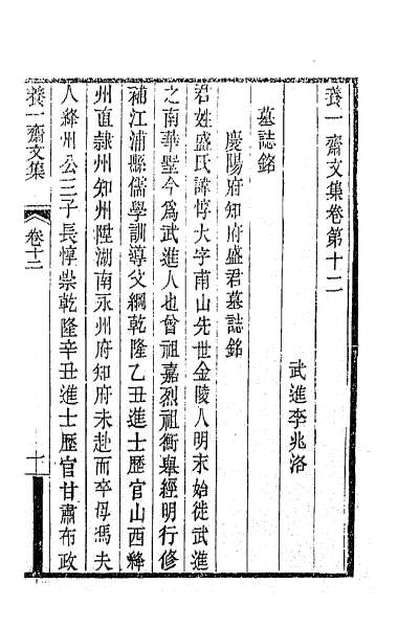 養一齋文集卷第十二
武進李兆洛
墓誌銘
慶陽府知府盛君墓誌銘
君姓盛氏諱惇大字甫山先世金陵人明末始徙武進
之南華墅今爲武進人也曾祖嘉烈祖衡舉經明行修
補江浦縣儒學訓導父綱乾隆乙丑進士歷官山西絳
州直隸州知州陞湖南永州府知府未赴而卒母馮夫
人絳州公三子長惇崇乾隆辛丑進士歷官甘肅布政
養一齋文集
卷十二
一